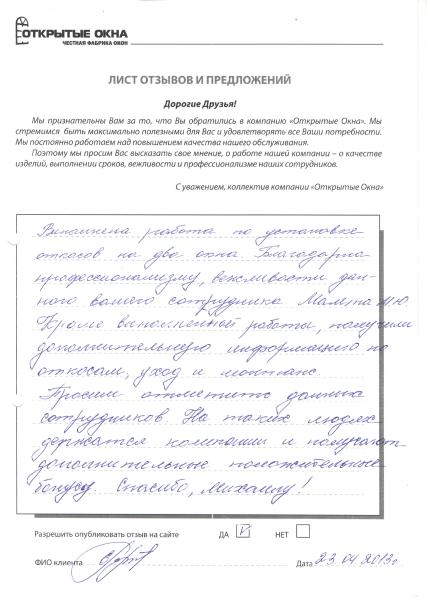 ОТКРЫТЫЕ ОКНА
ЧЕСТНАЯ ФАБРИКА ОКОН
ЛИСТ ОТЗЫВОВ И ПРЕДЛОЖЕНИЙ
Дорогие Друзья!
Мы признательны Вам за то, что Вы обратились в компанию «Открытые Окна». Мы
стремимся быть максимально полезными для Вас и удовлетворять все Ваши потребности.
Мы постоянно работаем над повышением качества нашего обслуживания.
Поэтому мы просим Вас высказать свое мнение, о работе нашей компании – о качестве
изделий, выполнении сроков, вежливости и профессионализме наших сотрудников.
С уважением, коллектив компании «Открытые Окна»
Выполнена работа по установке
откосов на два окна Благодарна
профессионализму, вежливости дан-
ного вашего сотрудника М.Ю.
Кроме выполненной работы, получили
дополнительную информацию по
откосам, уход и монтаж
Просим отметить данных
сотрудников На таких людях
держатся компании и получают
дополнительные положительные
бонусы. Спасибо, Михаилу!
Разрешить опубликовать отзыв на сайте ДА V НЕТ
ФИО клиента Дата 23.04.2013г